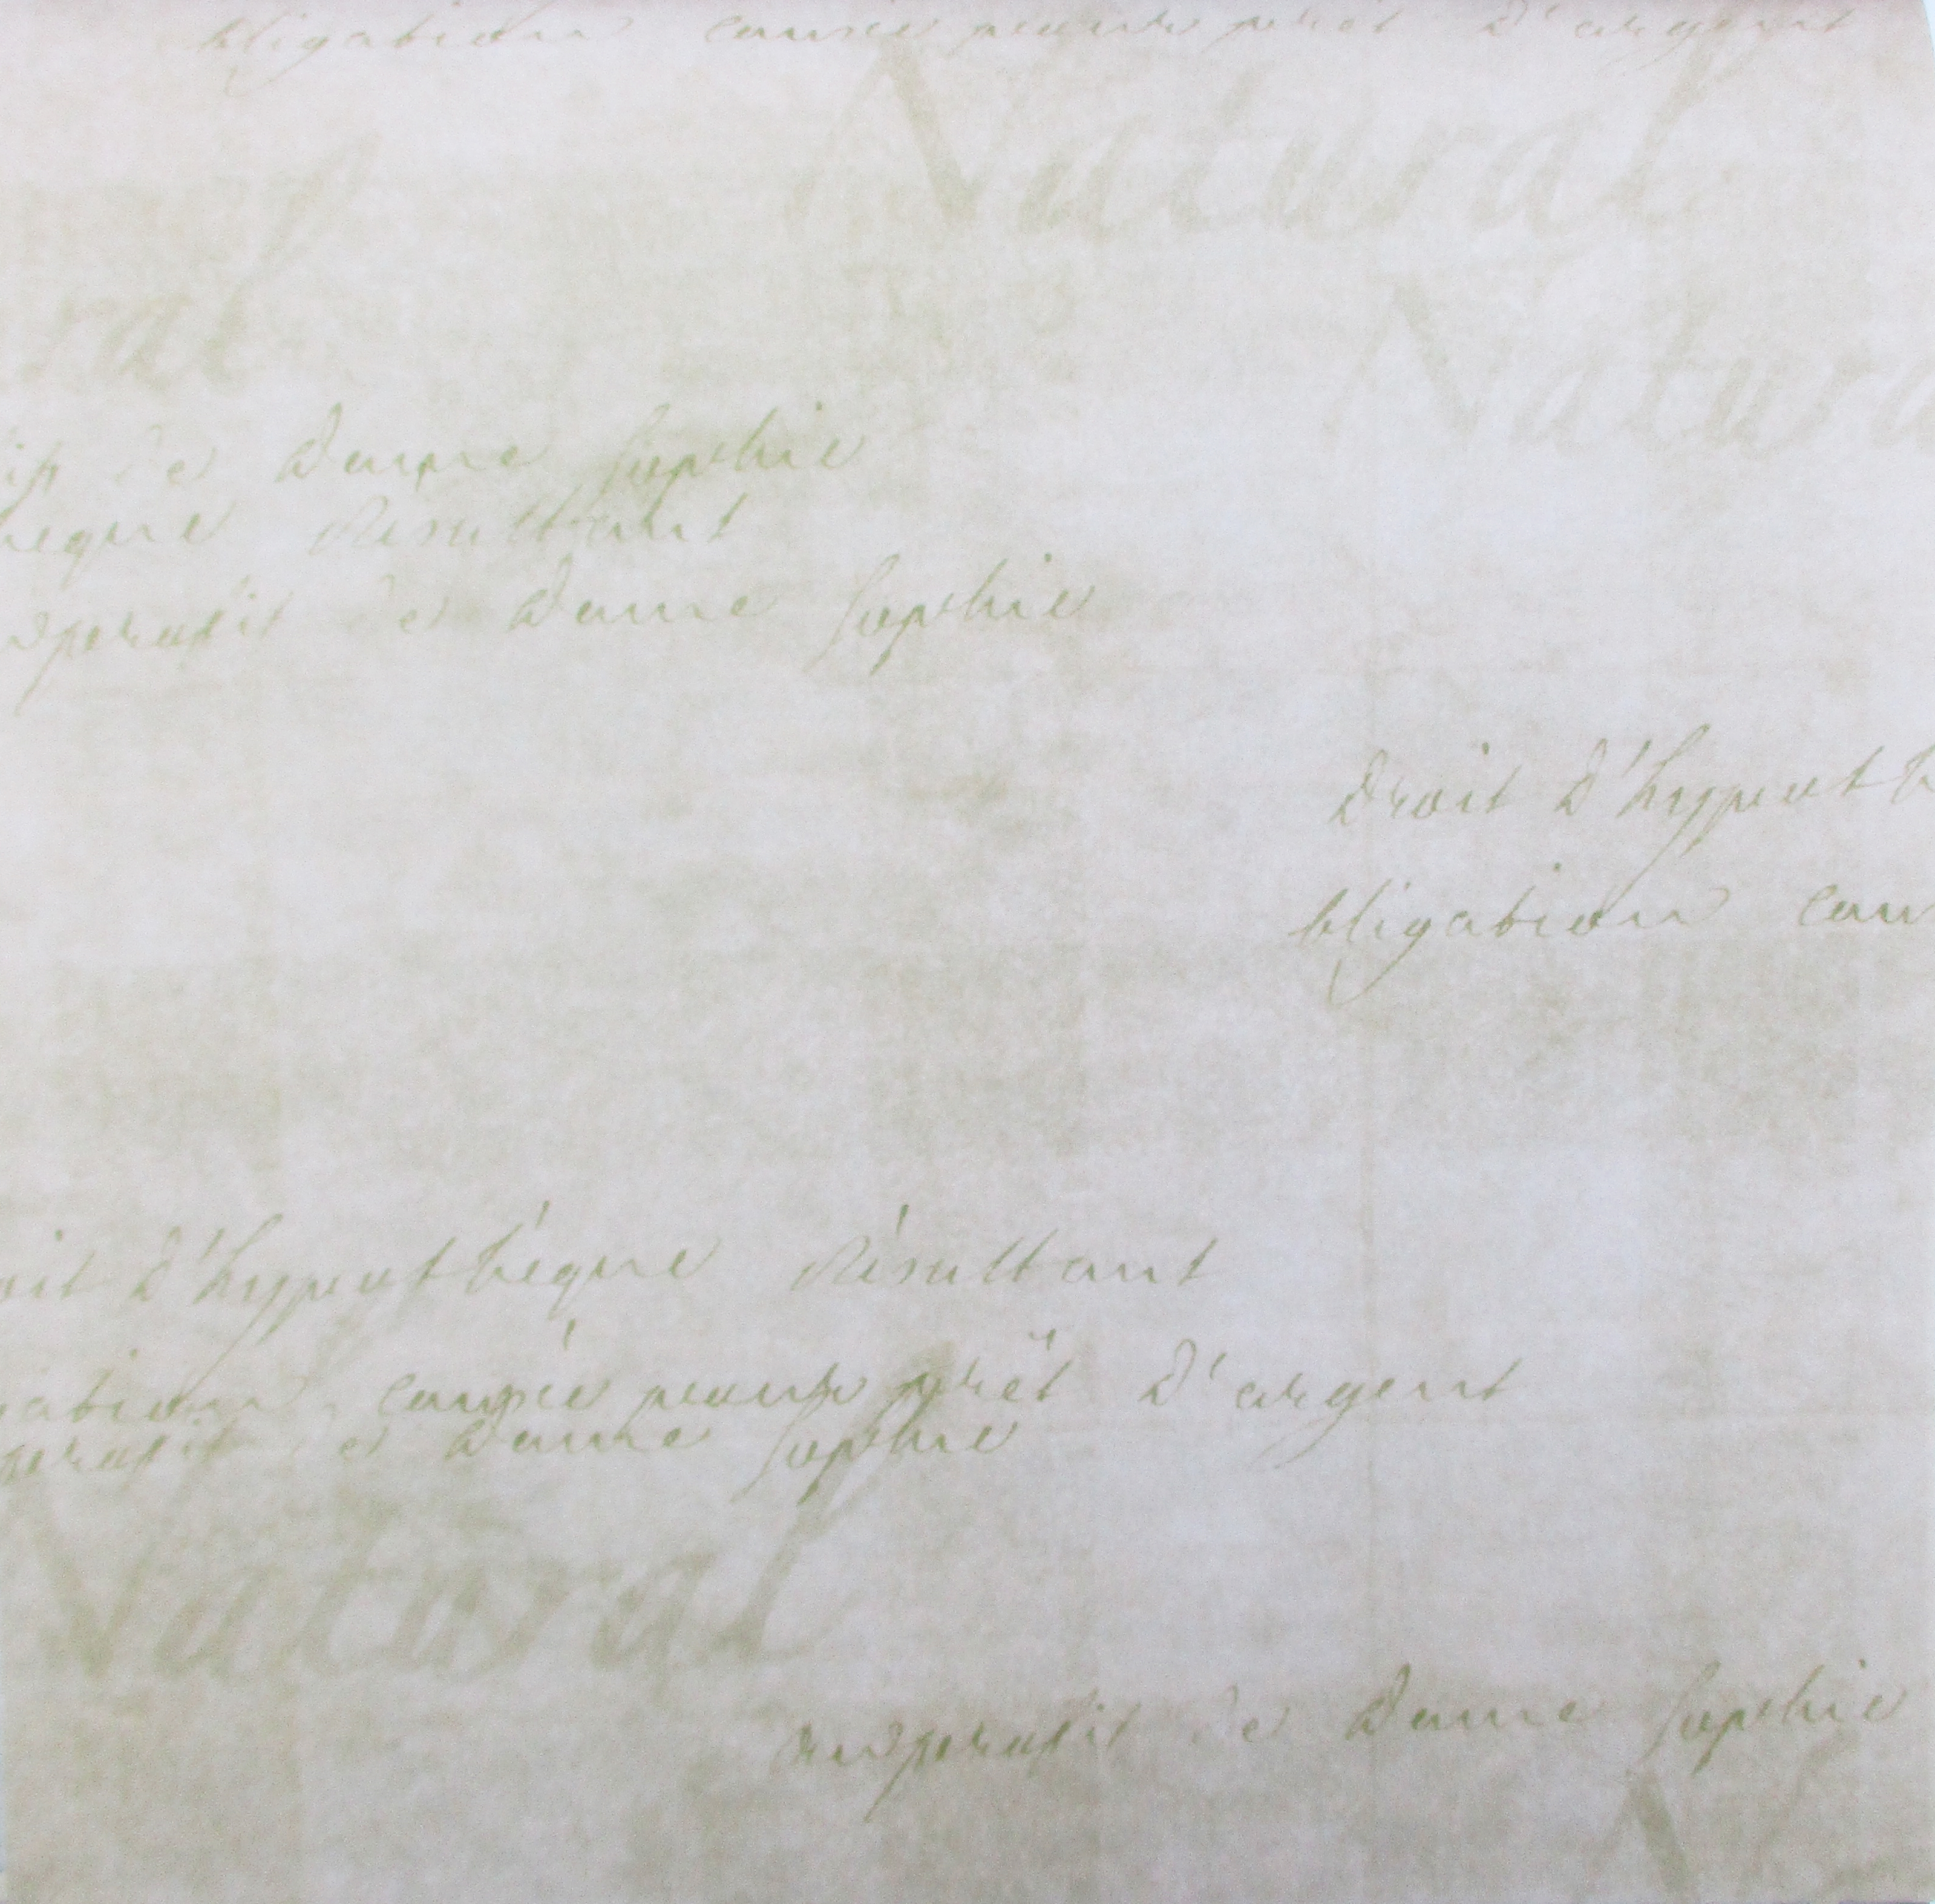 bligation causée pour prêt d'argent
Natural
ral
Natura
de Dame Sophie
hèque Résultant
proufit de Dame Sophie
droit d'hypoth
bligation cau
oit d'hypothèque Résultant
gation causée pour prêt d'argent
proufit de Dame Sophie
Natural
au proufit de Dame Sophie
N